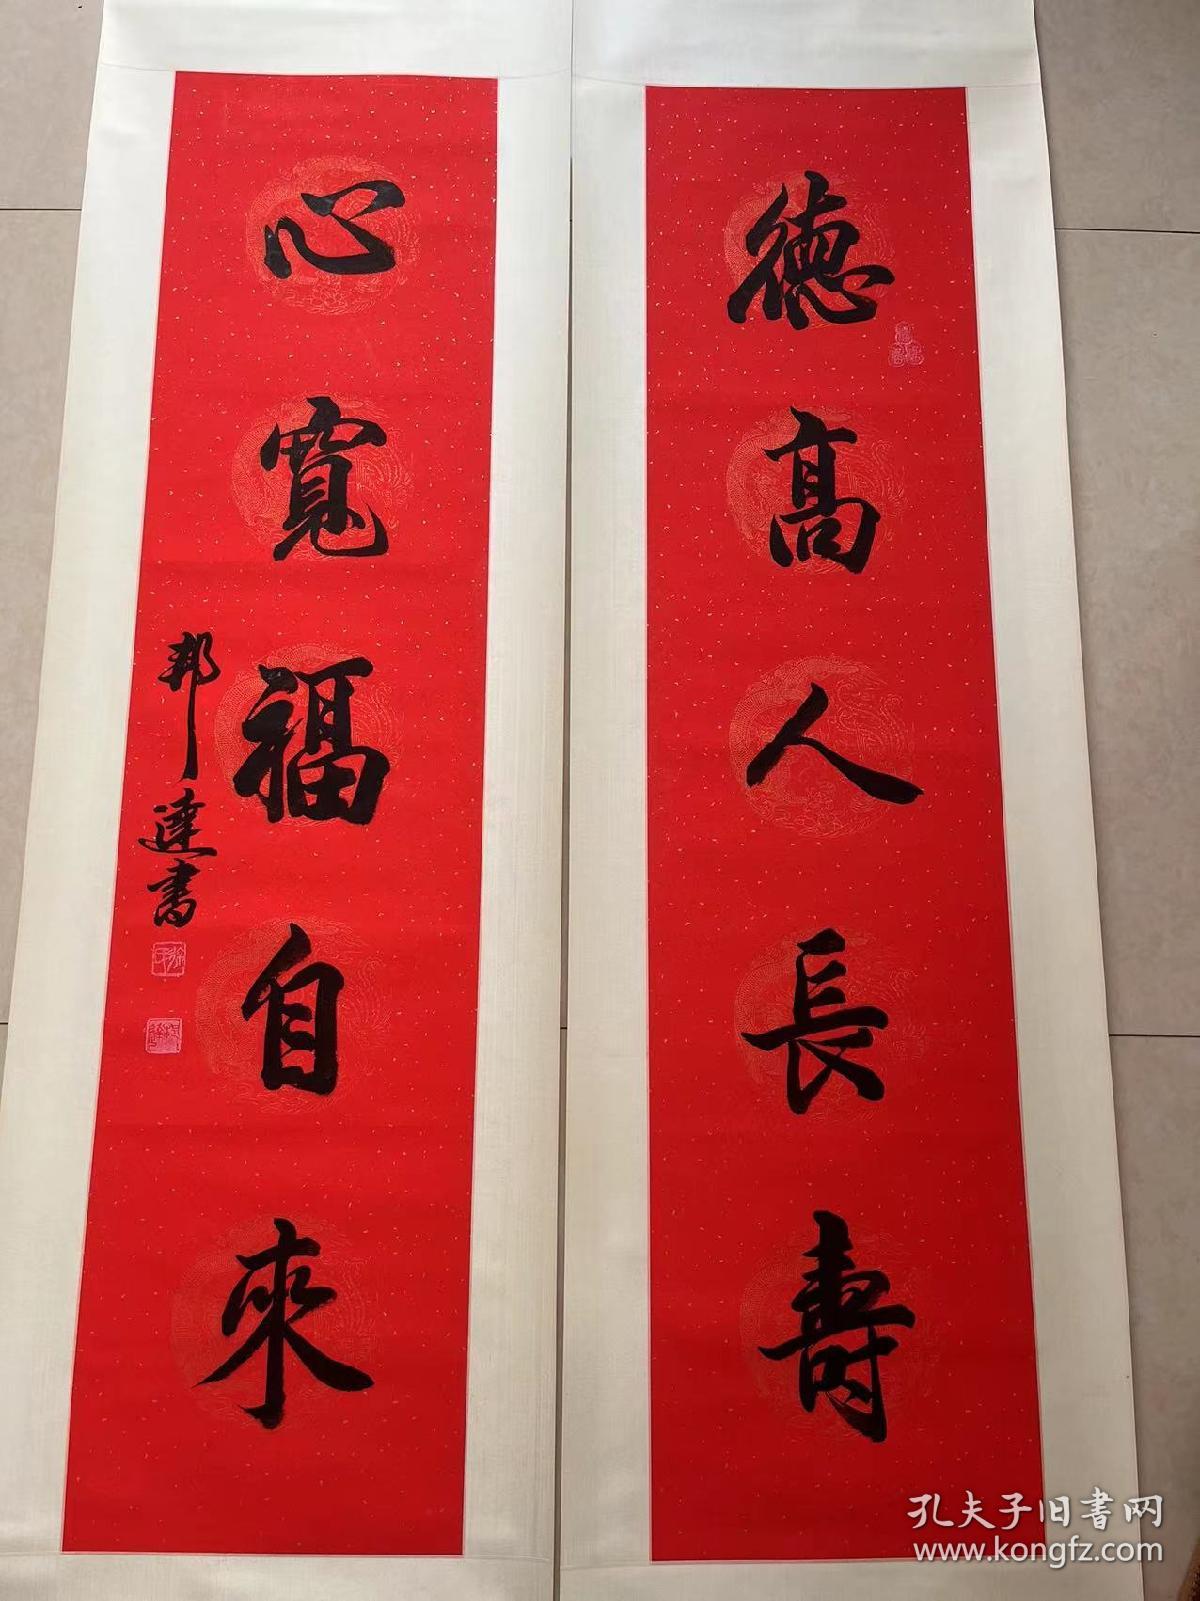 德高人長壽
心寬福自來
邦達書
孔夫子旧书网
www.kongfz.com